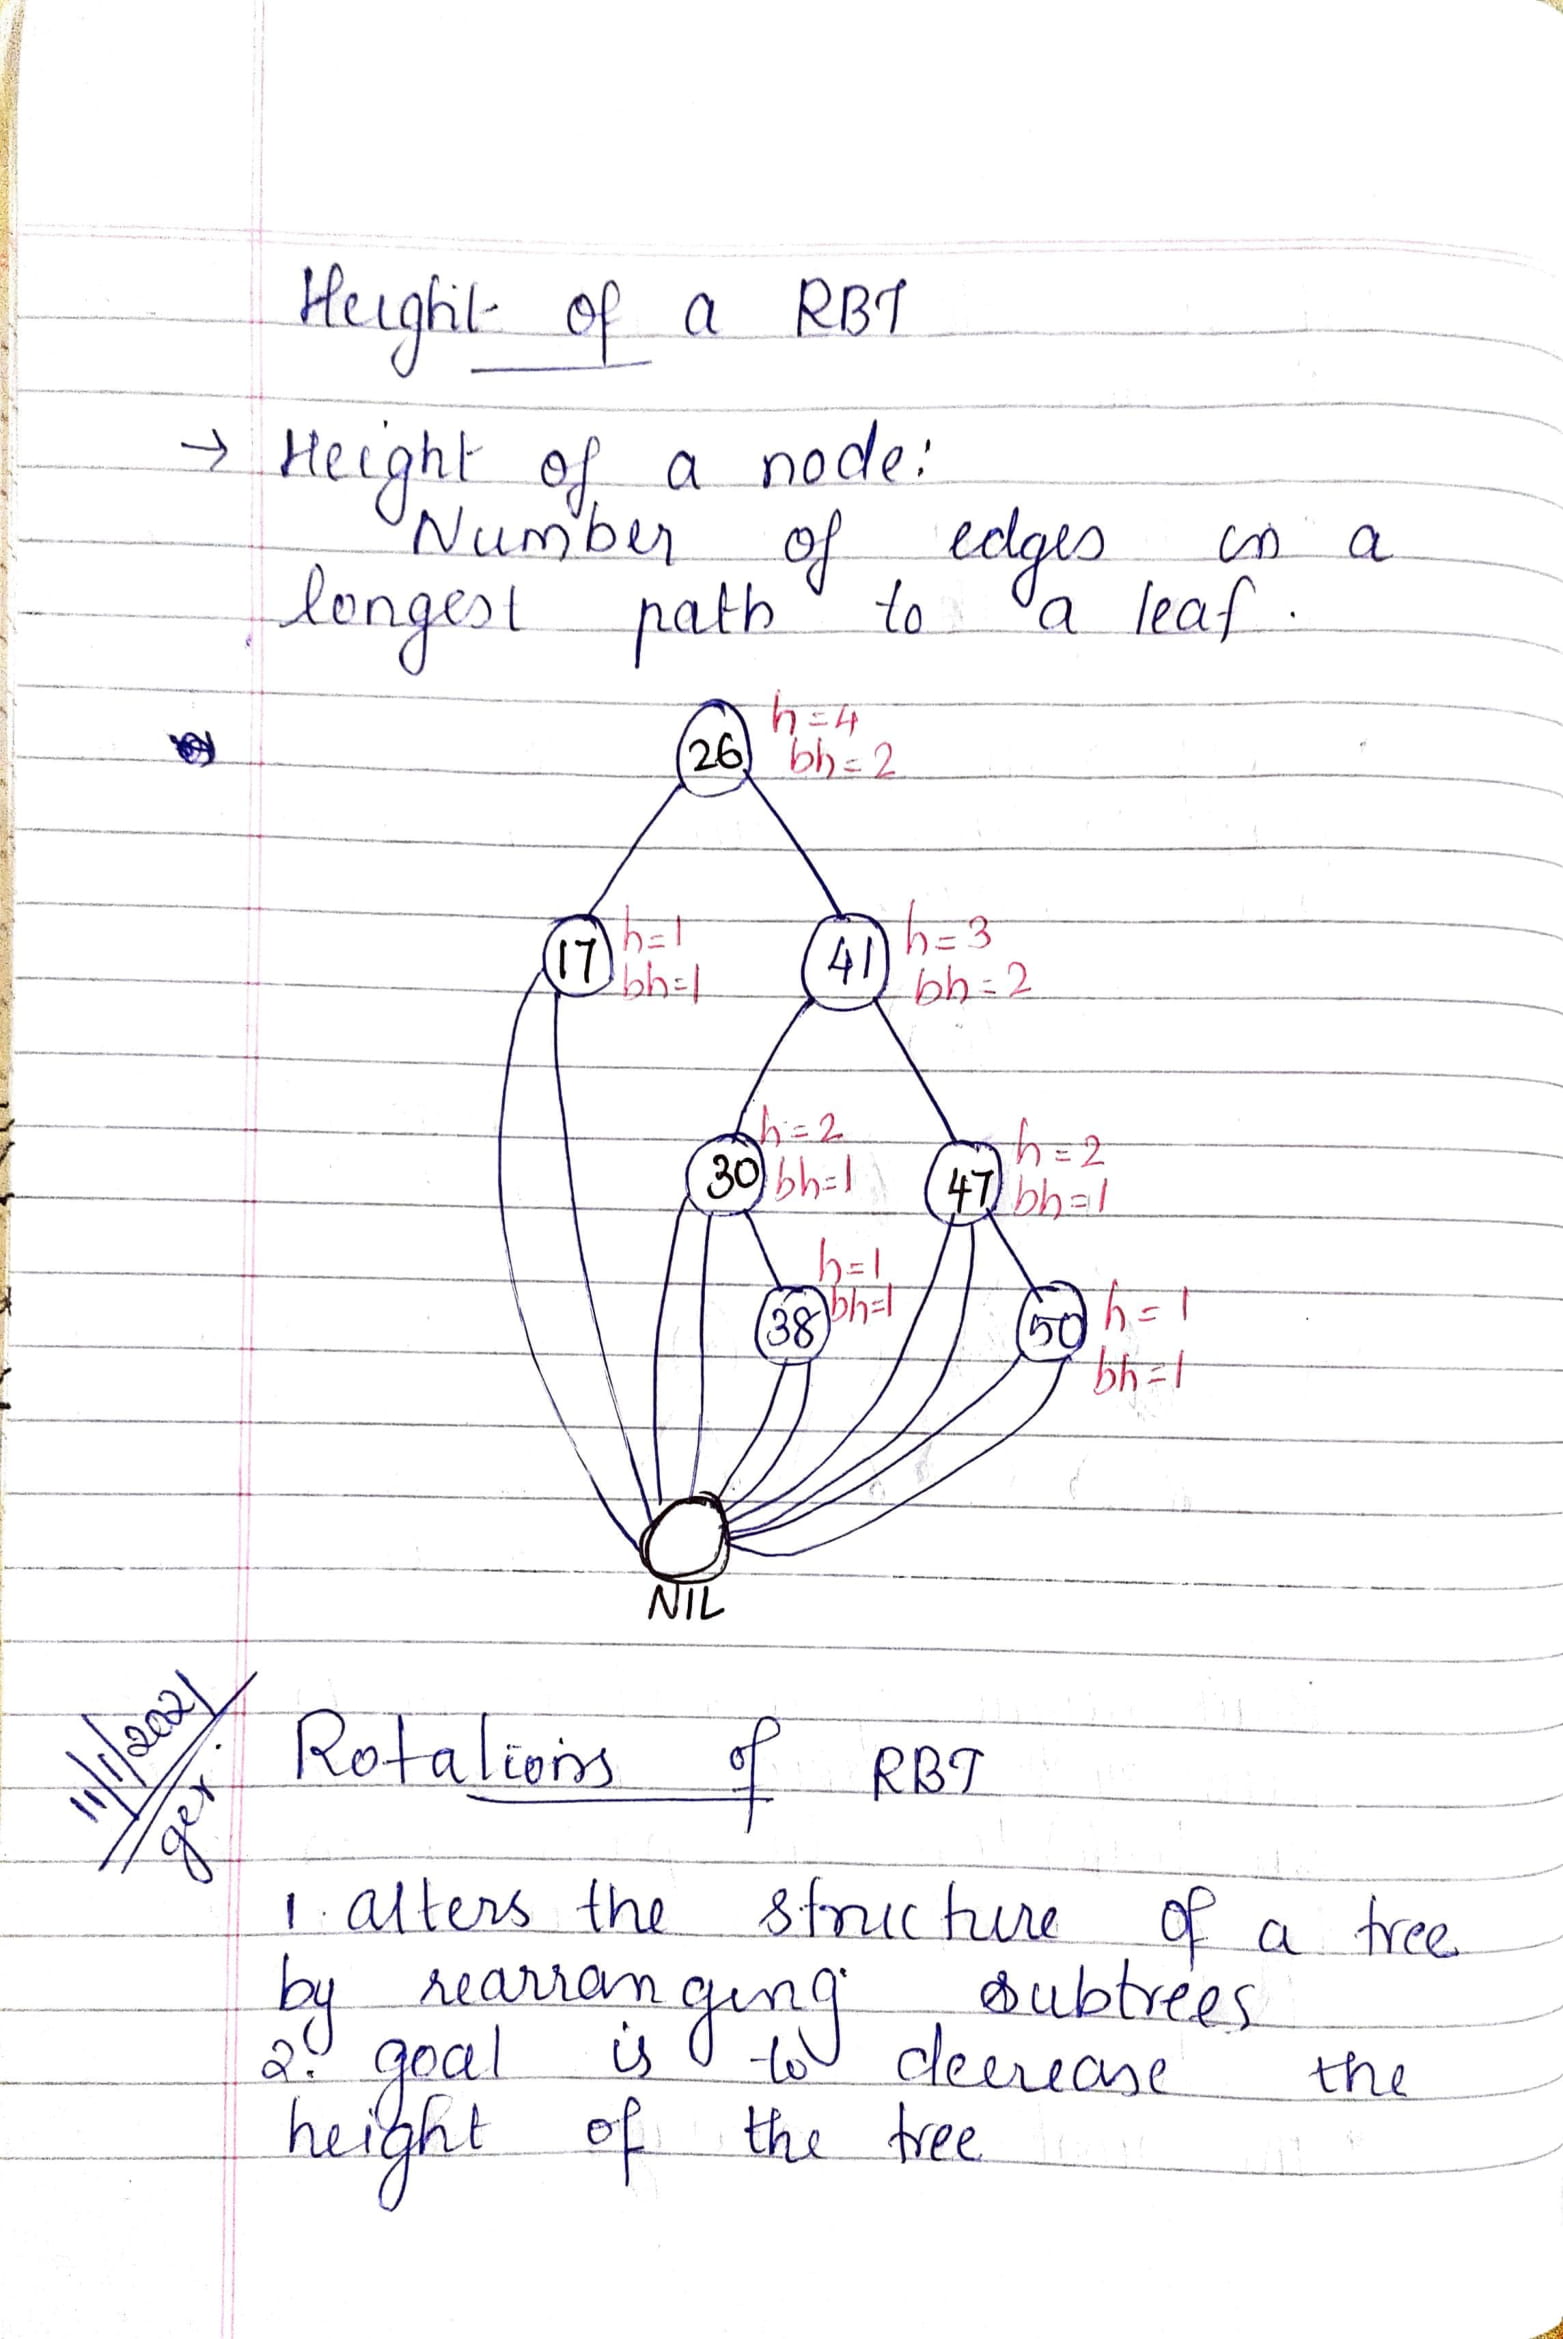 Height of a RBT
→ Height of a node:
Number of edges in a
longest path to a leaf.
26 h=4
bh=2
17 h=1
bh=1
41 h=3
bh=2
30 h=2
bh=1
47 h=2
bh=1
38 h=1
bh=1
50 h=1
bh=1
NIL
11/1/2021
Rotations of RBT
1. alters the structure of a tree
by rearranging subtrees
2. goal is to decrease the
height of the tree